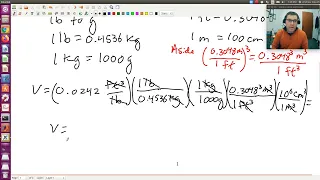 lb to g
1 lb = 0.4536 kg
1 kg = 1000 g
1 m = 100 cm
Aside (0.3048 m / 1 ft)³ = 0.3048³ m³ / 1 ft³
V = (0.0242 ft³ / lb)(1 lb / 0.4536 kg)(1 kg / 1000 g)(0.3048³ m³ / 1 ft³)(10⁶ cm³ / 1 m³) =
V =